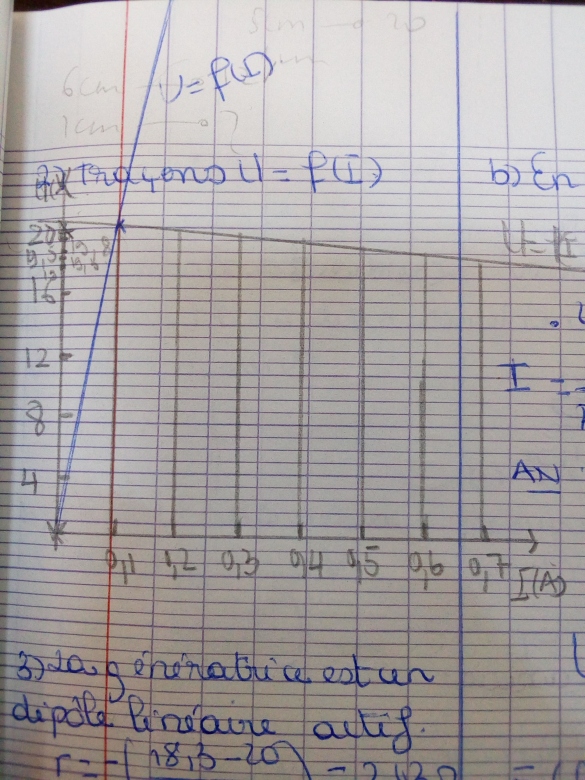 5cm → 20
6cm
U = f(I)
1cm → ?
Traçons U = f(I)
b) En
20
16
12
8
4
I
AN
0,1 0,2 0,3 0,4 0,5 0,6 0,7 I(A)
3) La génératrice est un
dipôle linéaire actif.
r = -(18,3-20)